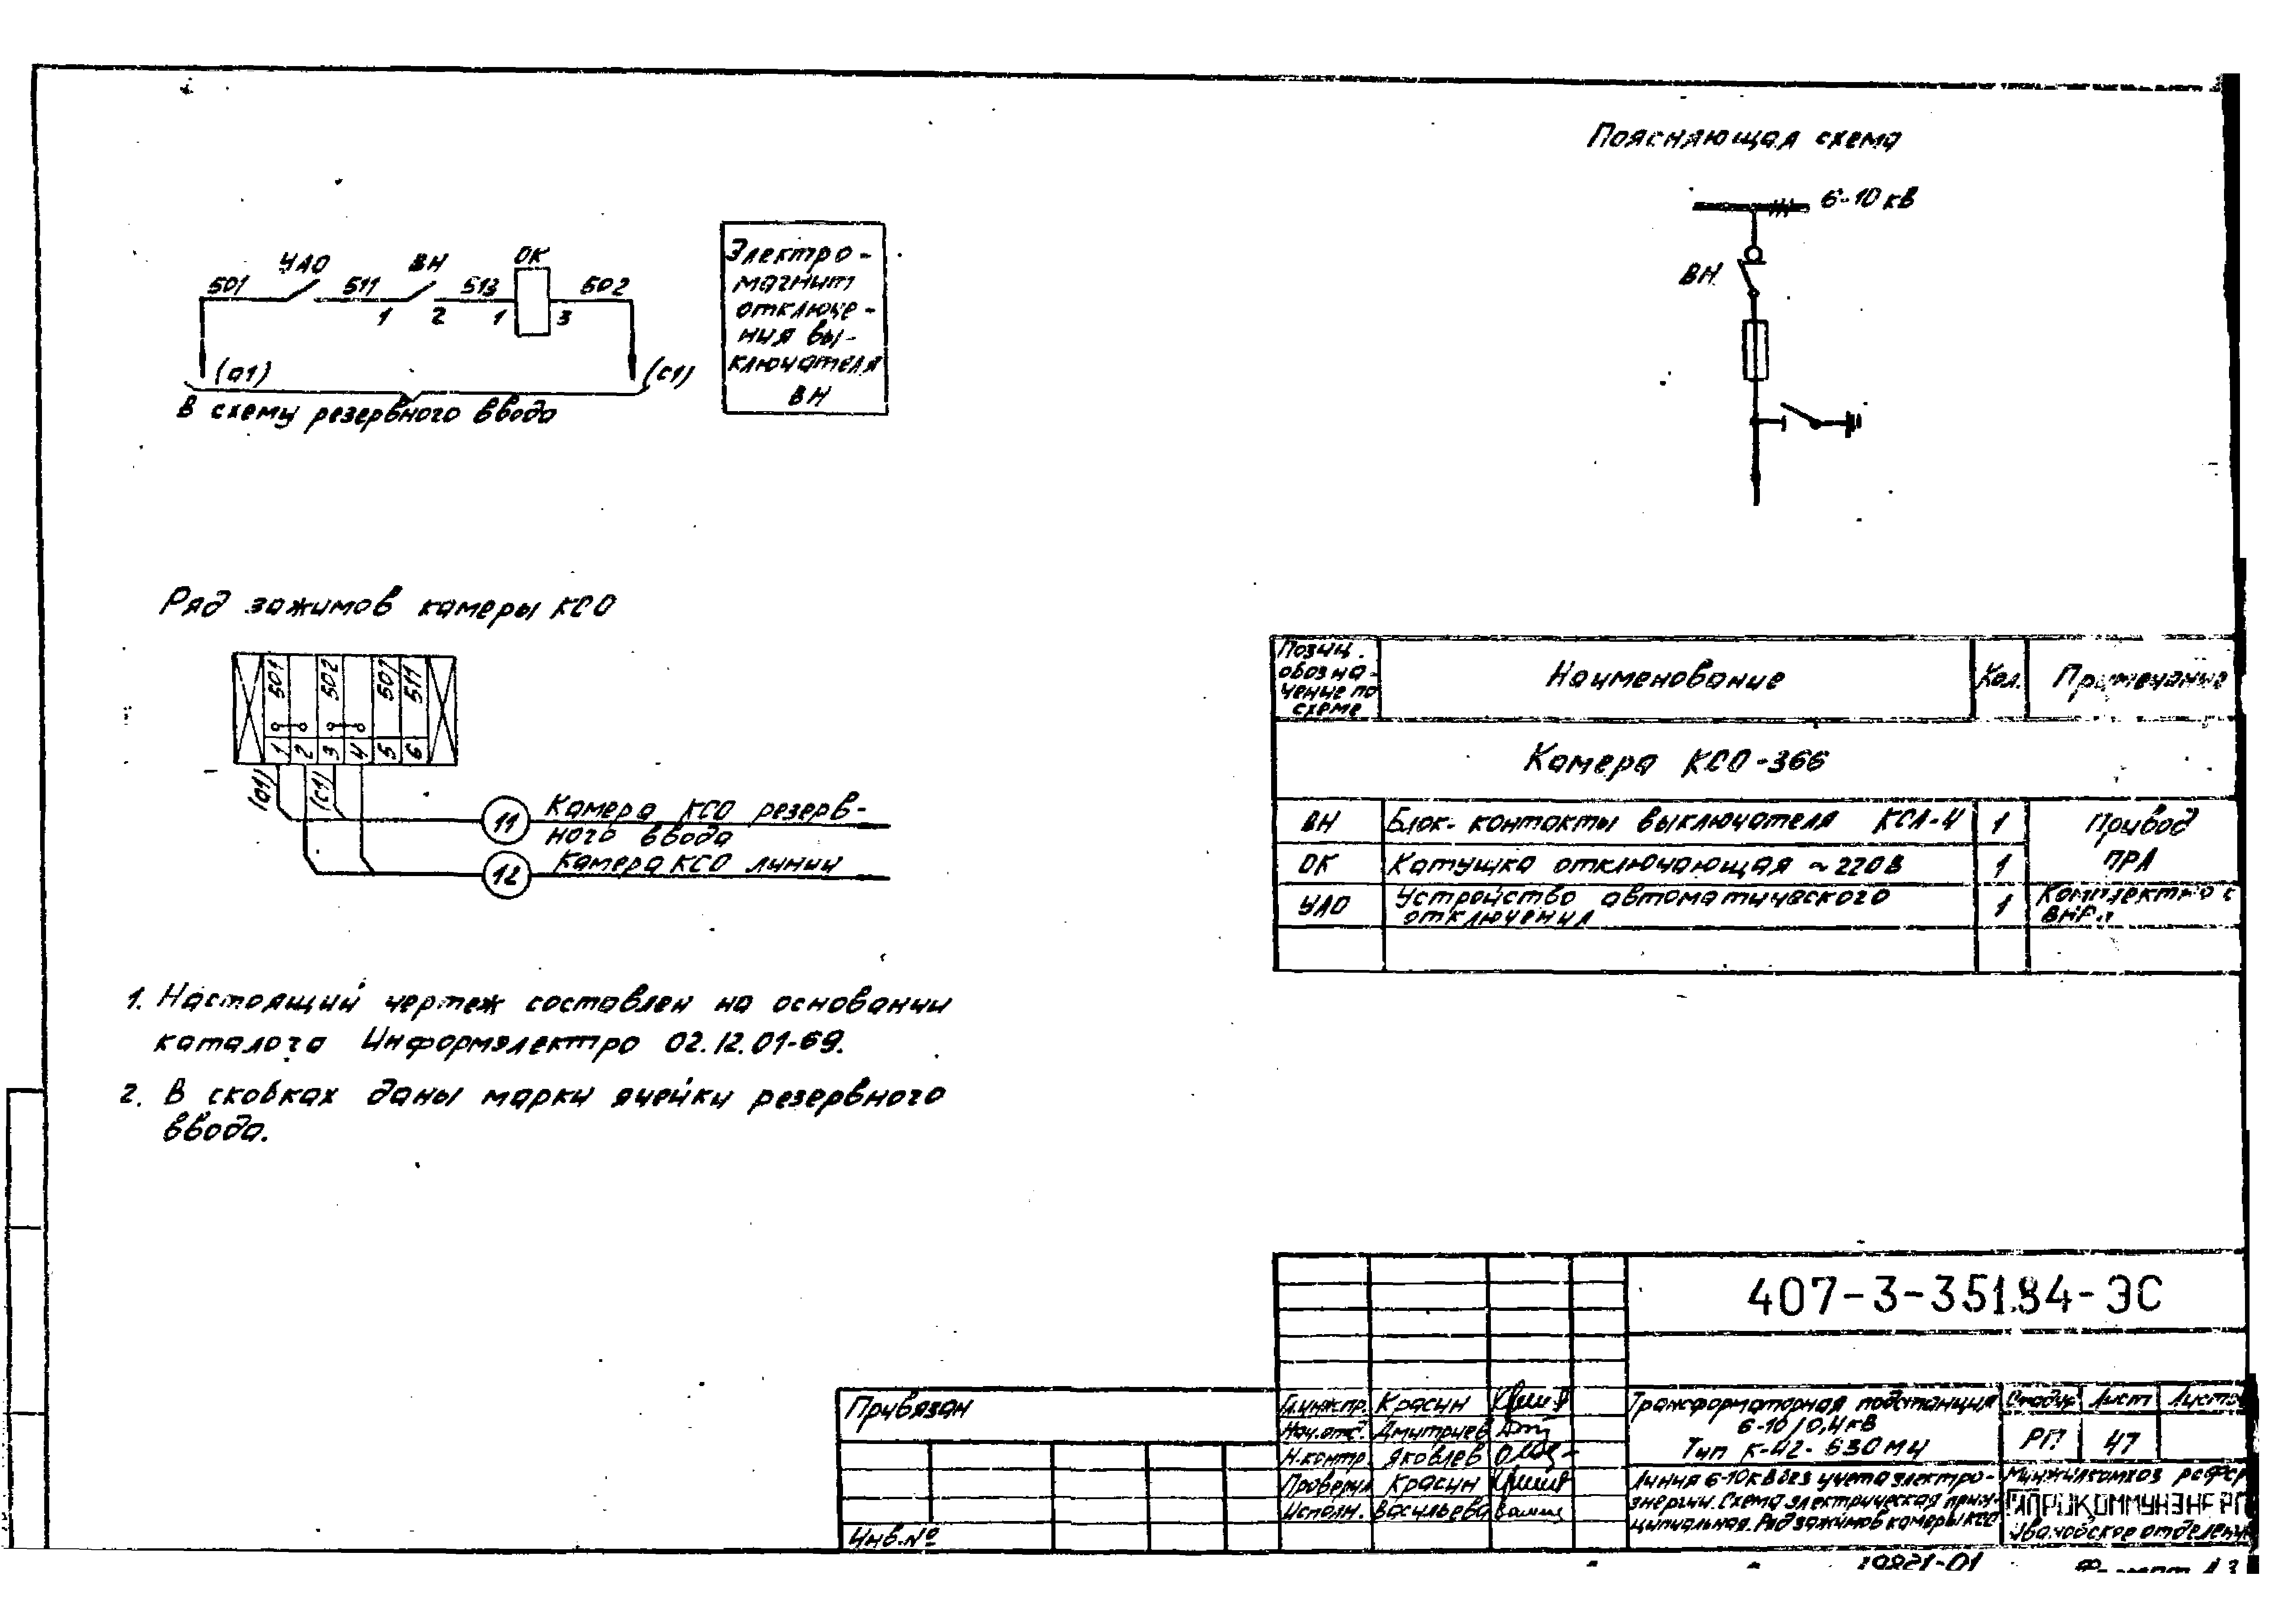 Поясняющая схема
6-10 кВ
ВН
501
УАО
511
ВН
513
ОК
502
1
2
1
3
(а1)
(с1)
В схему резервного ввода
Электро-
магнит
отключе-
ния вы-
ключателя
ВН
Ряд зажимов камеры КСО
501
502
501
511
1
2
3
4
5
6
(а1)
(с1)
11
Камера КСО резерв-
ного ввода
12
Камера КСО линии
1. Настоящий чертеж составлен на основании
каталога Информэлектро 02.12.01-69.
2. В скобках даны марки ячейки резервного
ввода.
Позиц. обозна-чение по схеме Наименование Кол. Примечание
Камера КСО-366
ВН Блок-контакты выключателя КСА-4 1 Привод
ОК Катушка отключающая ~220В 1 ПРА
УАО Устройство автоматического отключения 1 Комплектно с
407-3-351.84-ЭС
Привязан
Инв.№
Гл.инж.пр. Красин
Нач.отд. Дмитриев
Н.контр. Яковлев
Проверил Красин
Исполн. Васильева
Трансформаторная подстанция
6-10/0,4кВ
Тип К-42-630М4
Стадия Лист Листов
РП 47
Линия 6-10кВ без учета электро-
энергии. Схема электрическая принц-
ципиальная. Ряд зажимов камеры КСО
Минжилкомхоз РСФСР
ГИПРОКОММУНЭНЕРГО
Ивановское отделение
19821-01
Формат А3